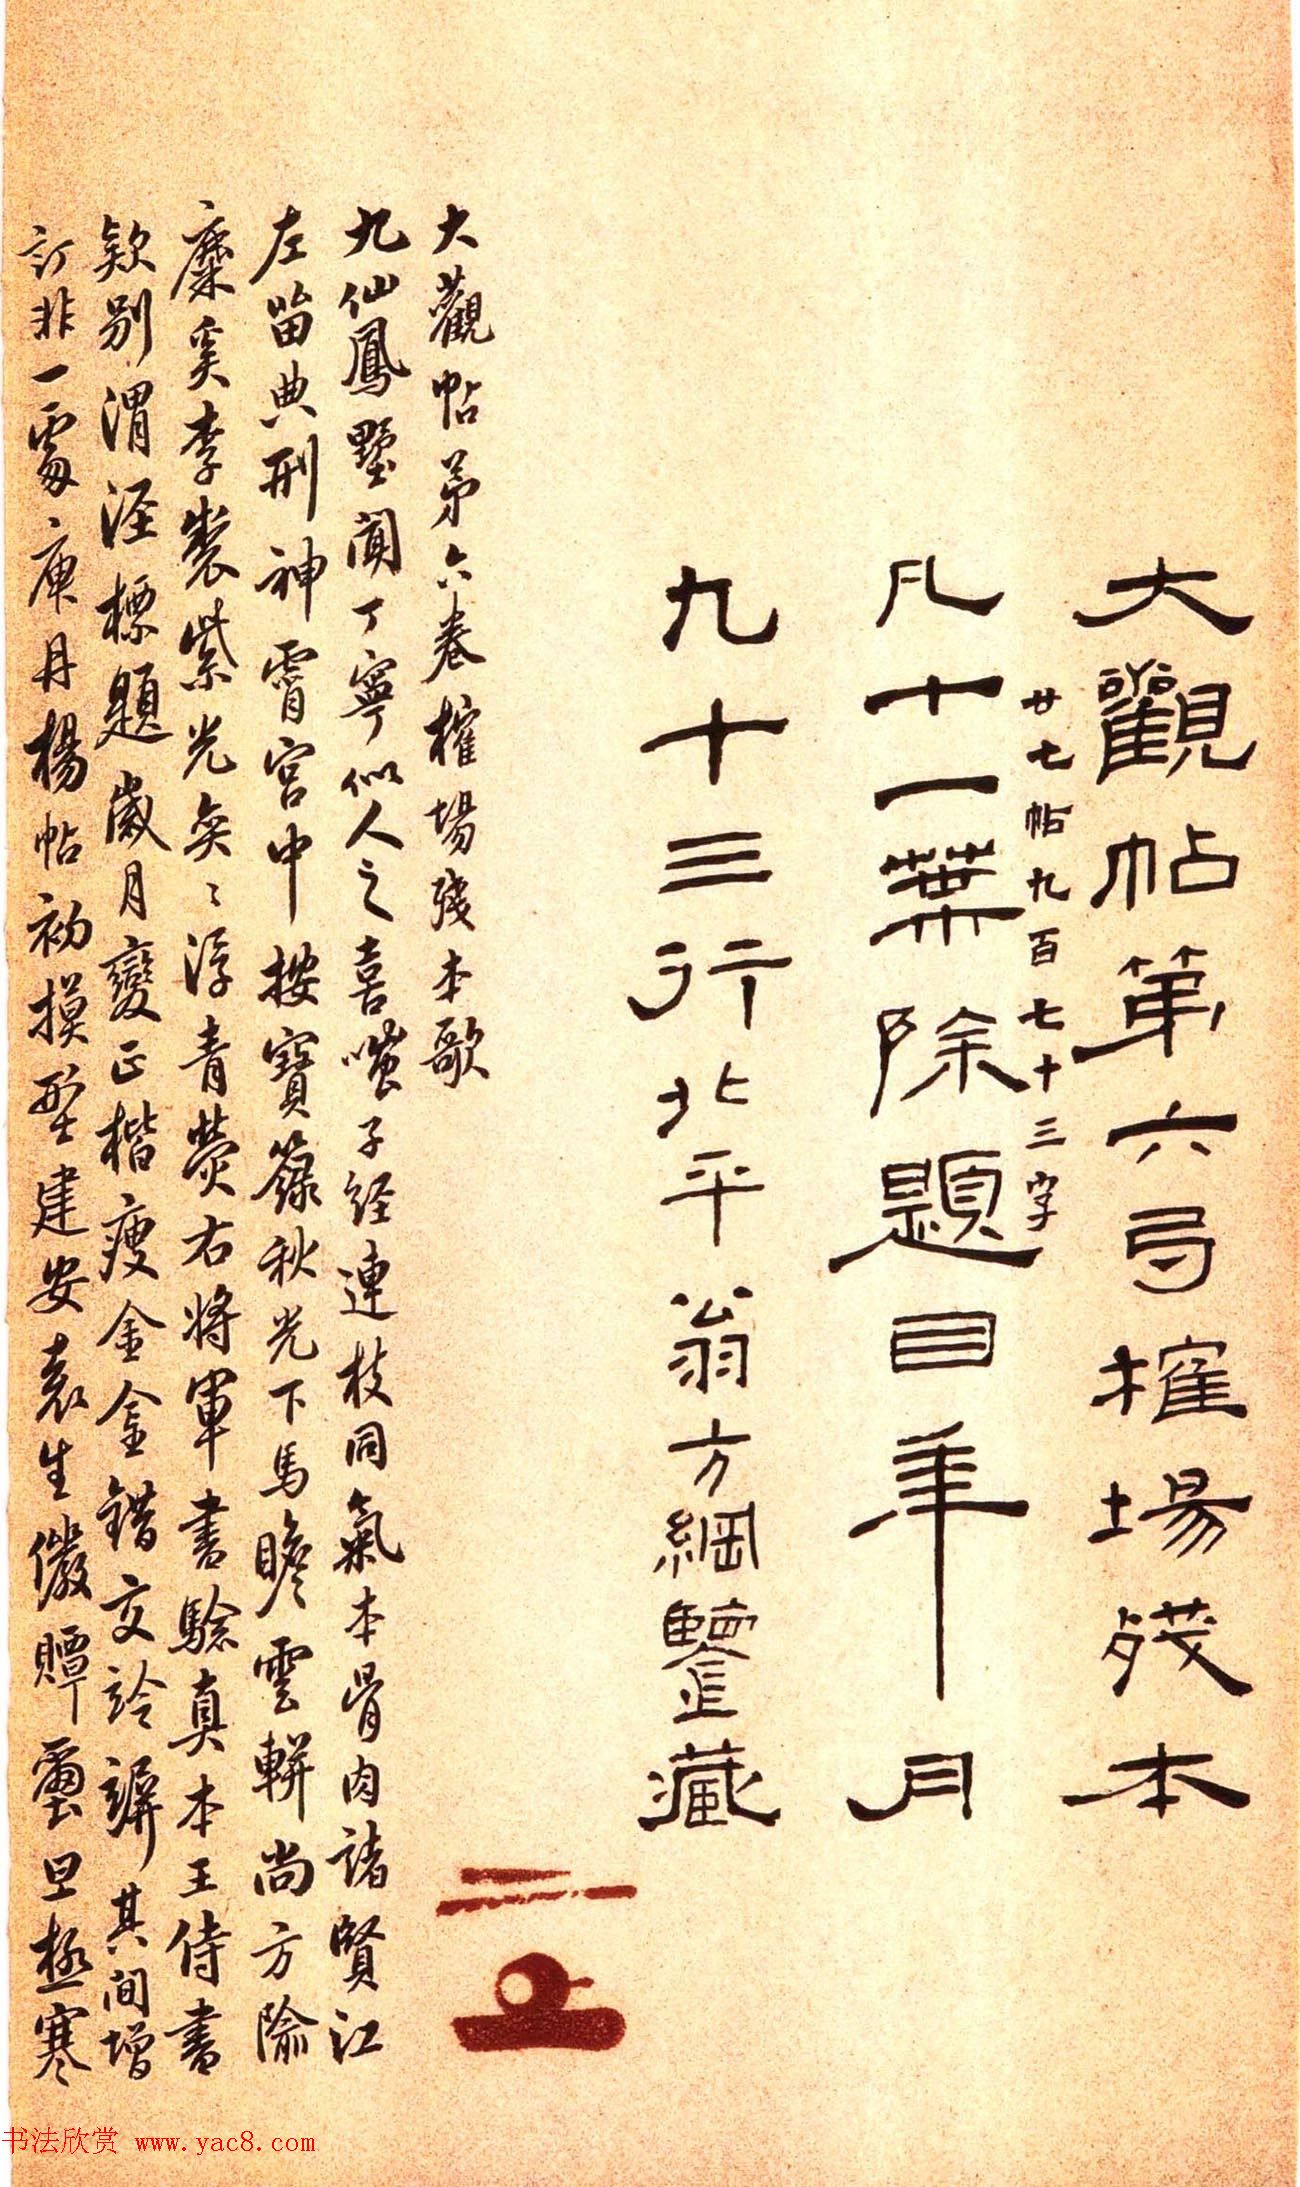 大觀帖第六㢧搉場殘本
廿七帖九百七十三字
凡十一葉除題目年月
九十三行北平翁方綱鑒藏
大觀帖第六卷榷場殘本歌
九仙鳳墅聞丁寧似人之喜嗤子經連枝同氣本骨肉諸賢江
左留典刑神霄宮中按寶籙秋光下馬瞻雲輧尚方隃
麋奚李製紫光奕〻浮青熒右將軍書驗真本王侍書
欵別渭涇標題歲月變正楷瘦金金錯交詅䛒其間增
訂非一處庚丹楊帖初摸型建安袁生儆贉璽旦極寒
书法欣赏 www.yac8.com